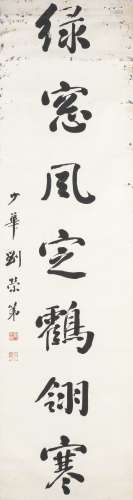 綠窓風定鶴翎寒
少華劉榮第